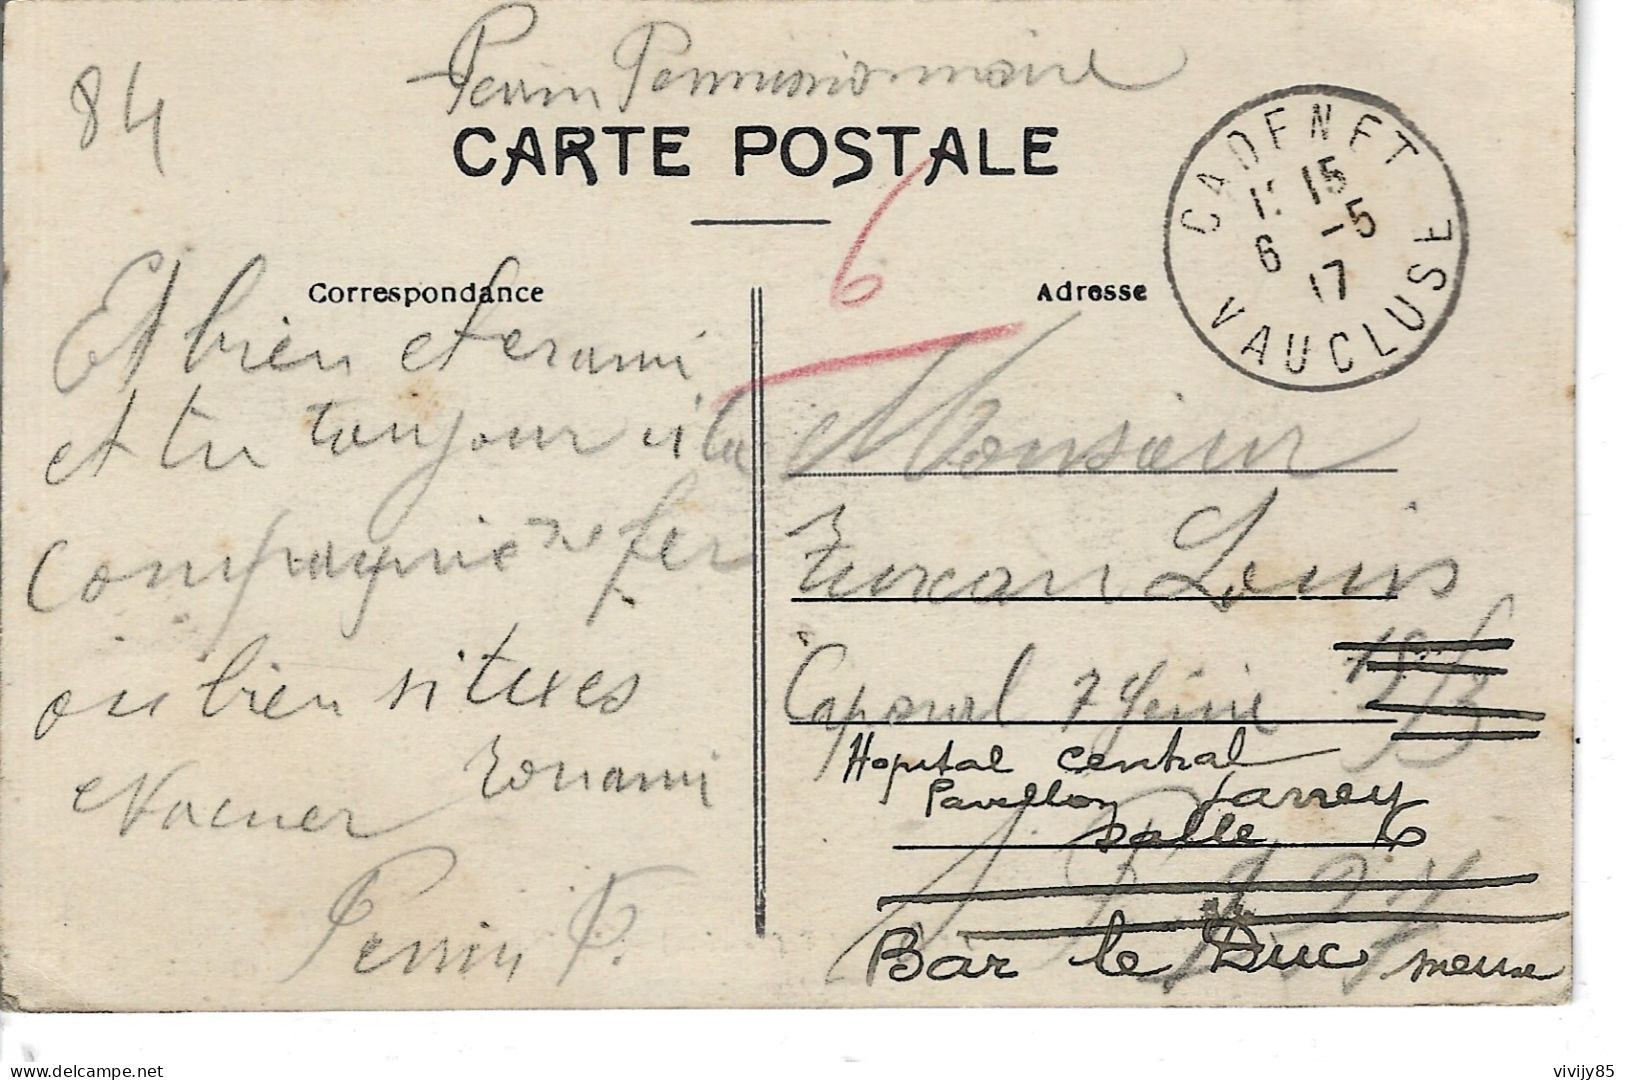 84
Perrin Permissionnaire
CARTE POSTALE
CADENET
15
6 -5
17
VAUCLUSE
6
Correspondance
Adresse
Et bien cher ami
et tu toujour a la
Compagnie
ou bien si tu es
évacuer Ton ami
Perrin F.
Monsieur
Louis
Caporal 7 Génie
Hopital Central
Pavillon Larrey
Salle 6
Bar le Duc Meuse
delcampe.net
vivijy85